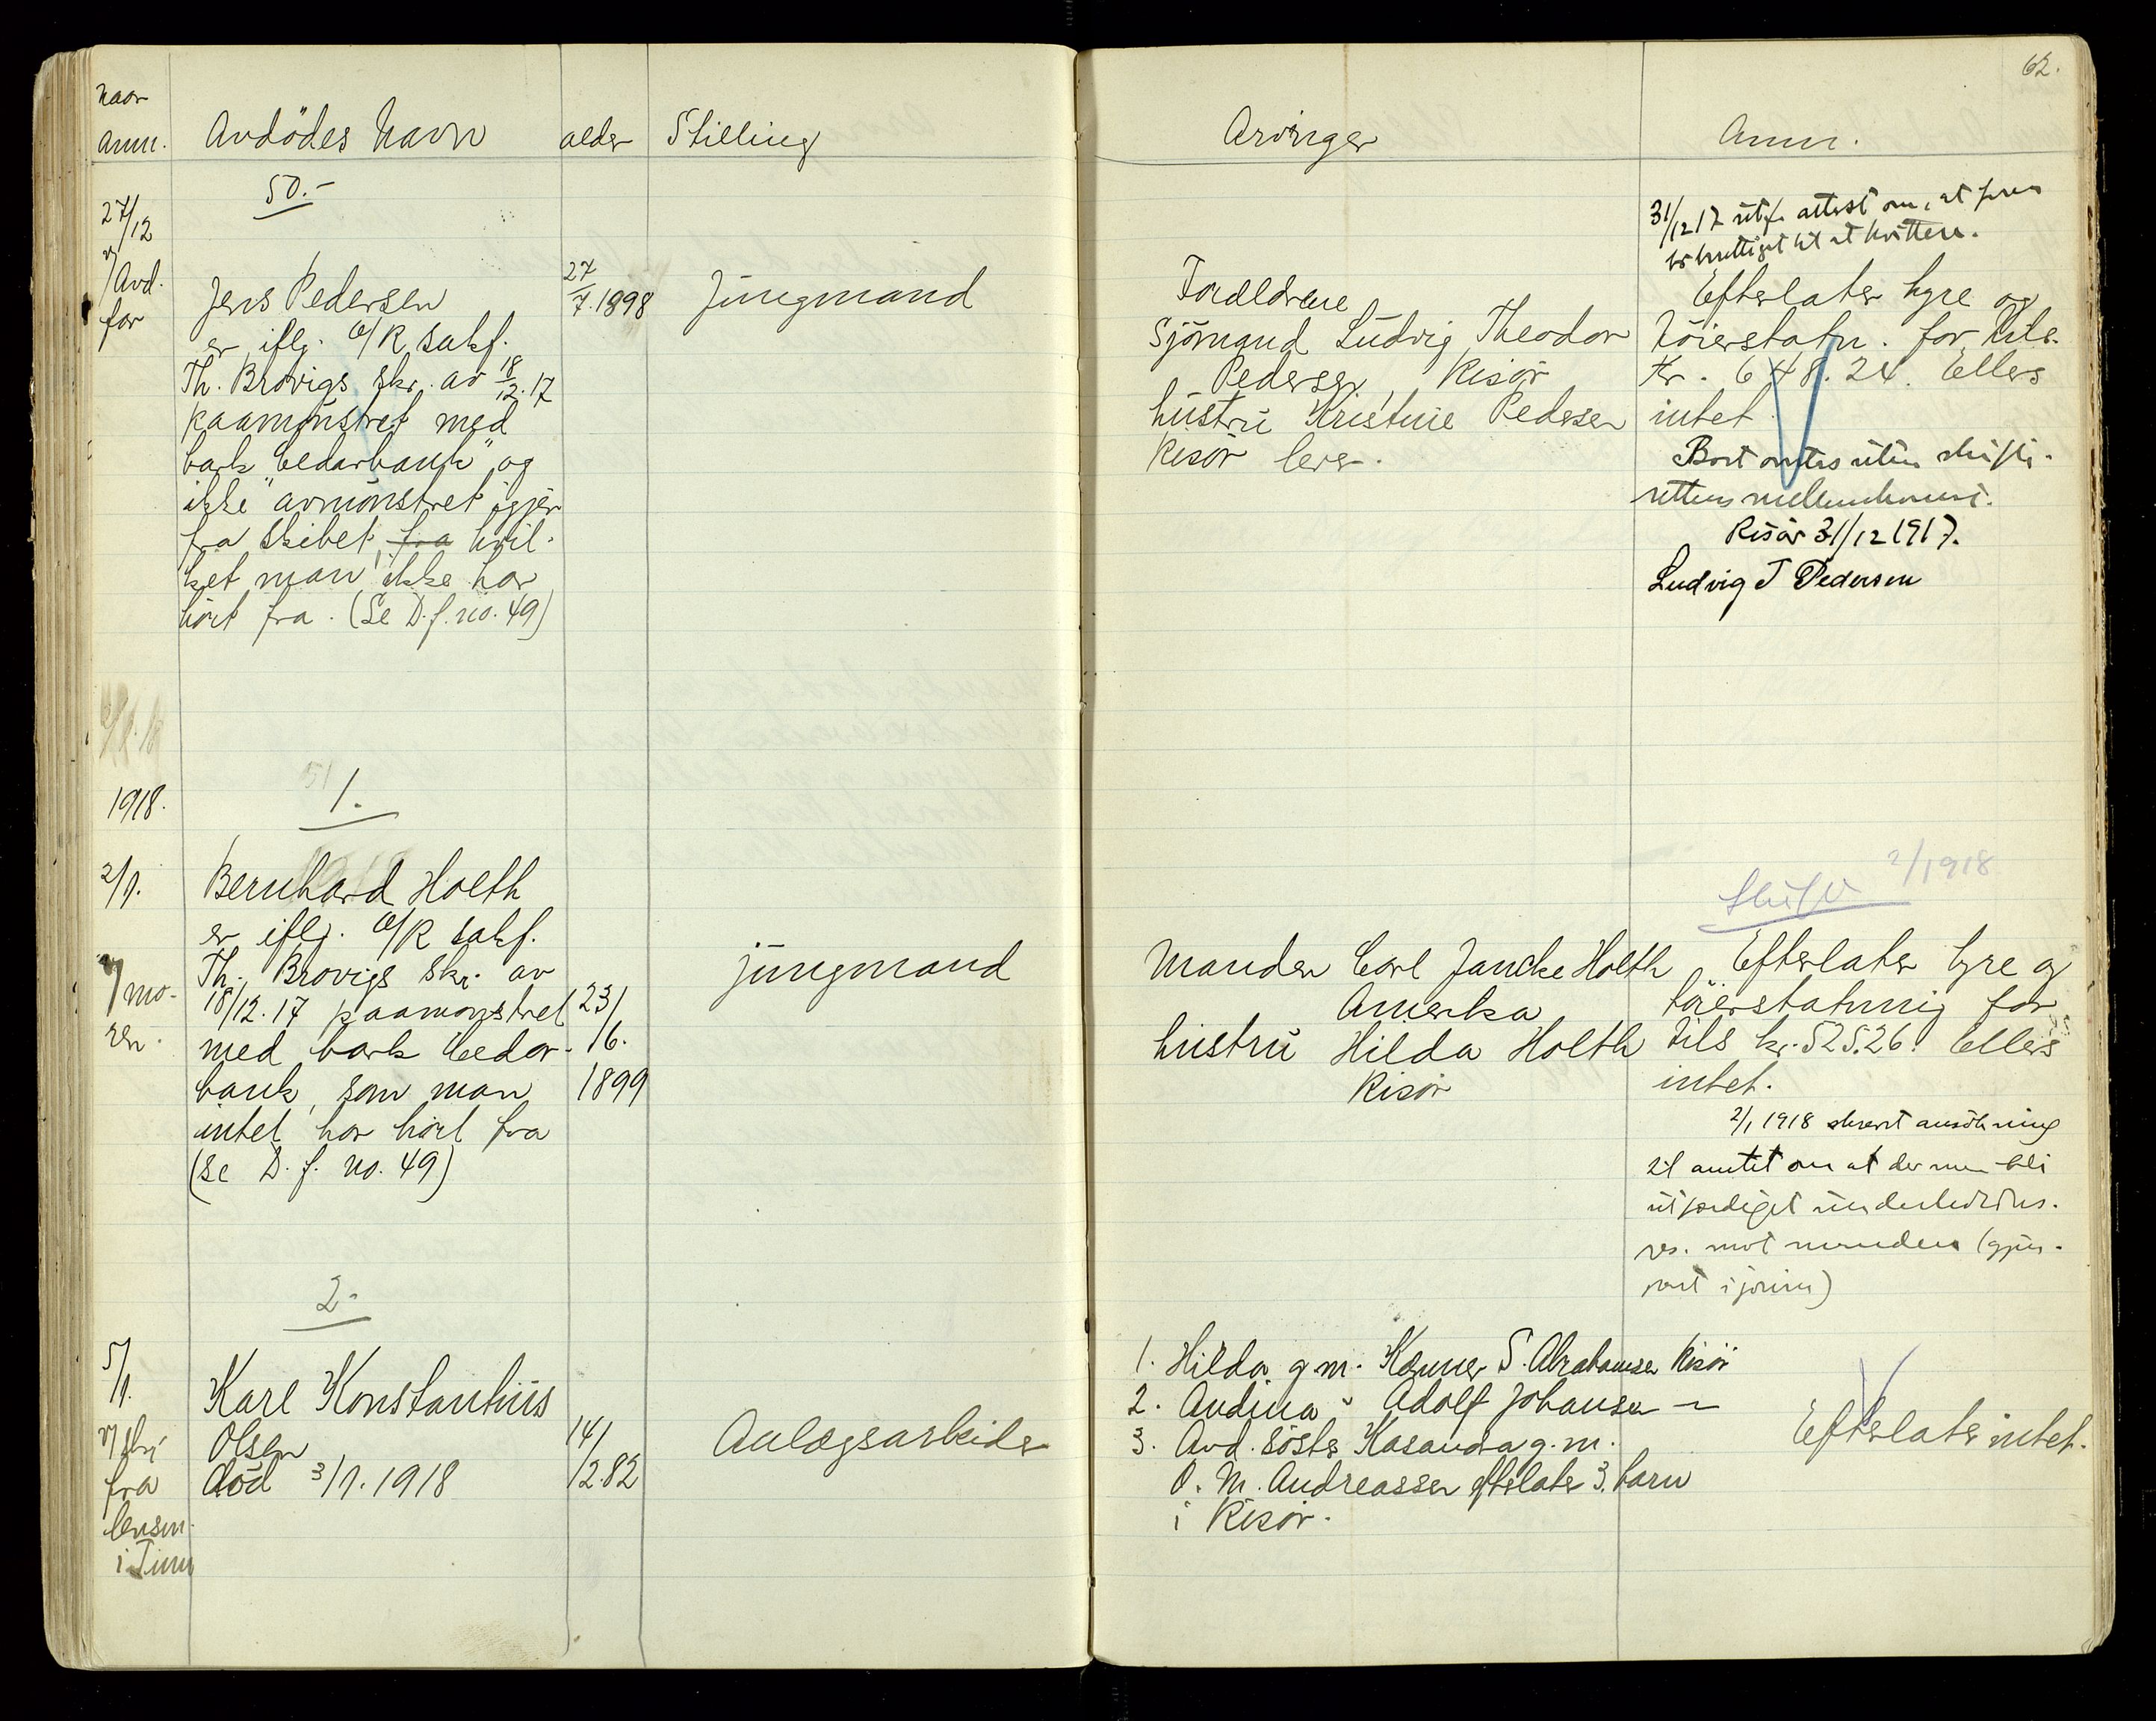 62.
Naar
anm. Avdödes Navn alder Stilling Arvinger Anm.
50.-
27/12
v/ Avd.
far
Jens Pedersen
er iflg. A/R sakf.
Th. Brovigs skr. av 18/12.17
paamönstret med
bark "Cedarbank" og
ikke avmönstret igjen
fra Skibet, fra hvil-
ket man ikke har
hört fra. (Se D.f. no. 49)
27/7.1898
Jungmand
Forældrene
Sjömand Ludvig Theodor
Pedersen, Risör
hustru Kristine Pedersen
Risör lever.
31/12 17 utf. attest om, at faren
er berettiget til at kvittere.
Efterlater hyre og
töierstatn. for tils.
Kr. 648.24. Ellers
intet.
Boet ordnes uten skifte-
rettens mellemkomst.
Risör 31/12 1917.
Ludvig T Pedersen
1918.
51
1.
2/1.
v/ mo-
ren.
Bernhard Holth
er iflg. A/R sakf.
Th. Brovigs skr. av
18/12.17 paamonstret
med bark Cedar-
bank, som man
intet har hört fra
(Se D.f. no. 49)
23/
/6.
1899
jungmand
Manden Carl Jancke Holth
Amerika
hustru Hilda Holth
Risör
2/1918
Skifte
Efterlater hyre og
töierstatning for
tils kr. 525.26. Ellers
intet.
2/1 1918 skrevet ansökning
til amtet om at der maa bli
utfærdiget underholdns.
res. mot manden (gjen-
part i journ)
2.
5/1.
v/ skr.
fra
lensm.
i Tinn
Karl Konstantius
Olsen
död 3/1.1918
14/
/2.82
Anlægsarbeider
1. Hilda g.m. Konner S. Abrahamsen Risör
2. Andina " Adolf Johansen —
3. Avd. söster Kasandra g.m.
O. M. Andreassen efterlater 3 barn
i Risör.
Efterlater intet.